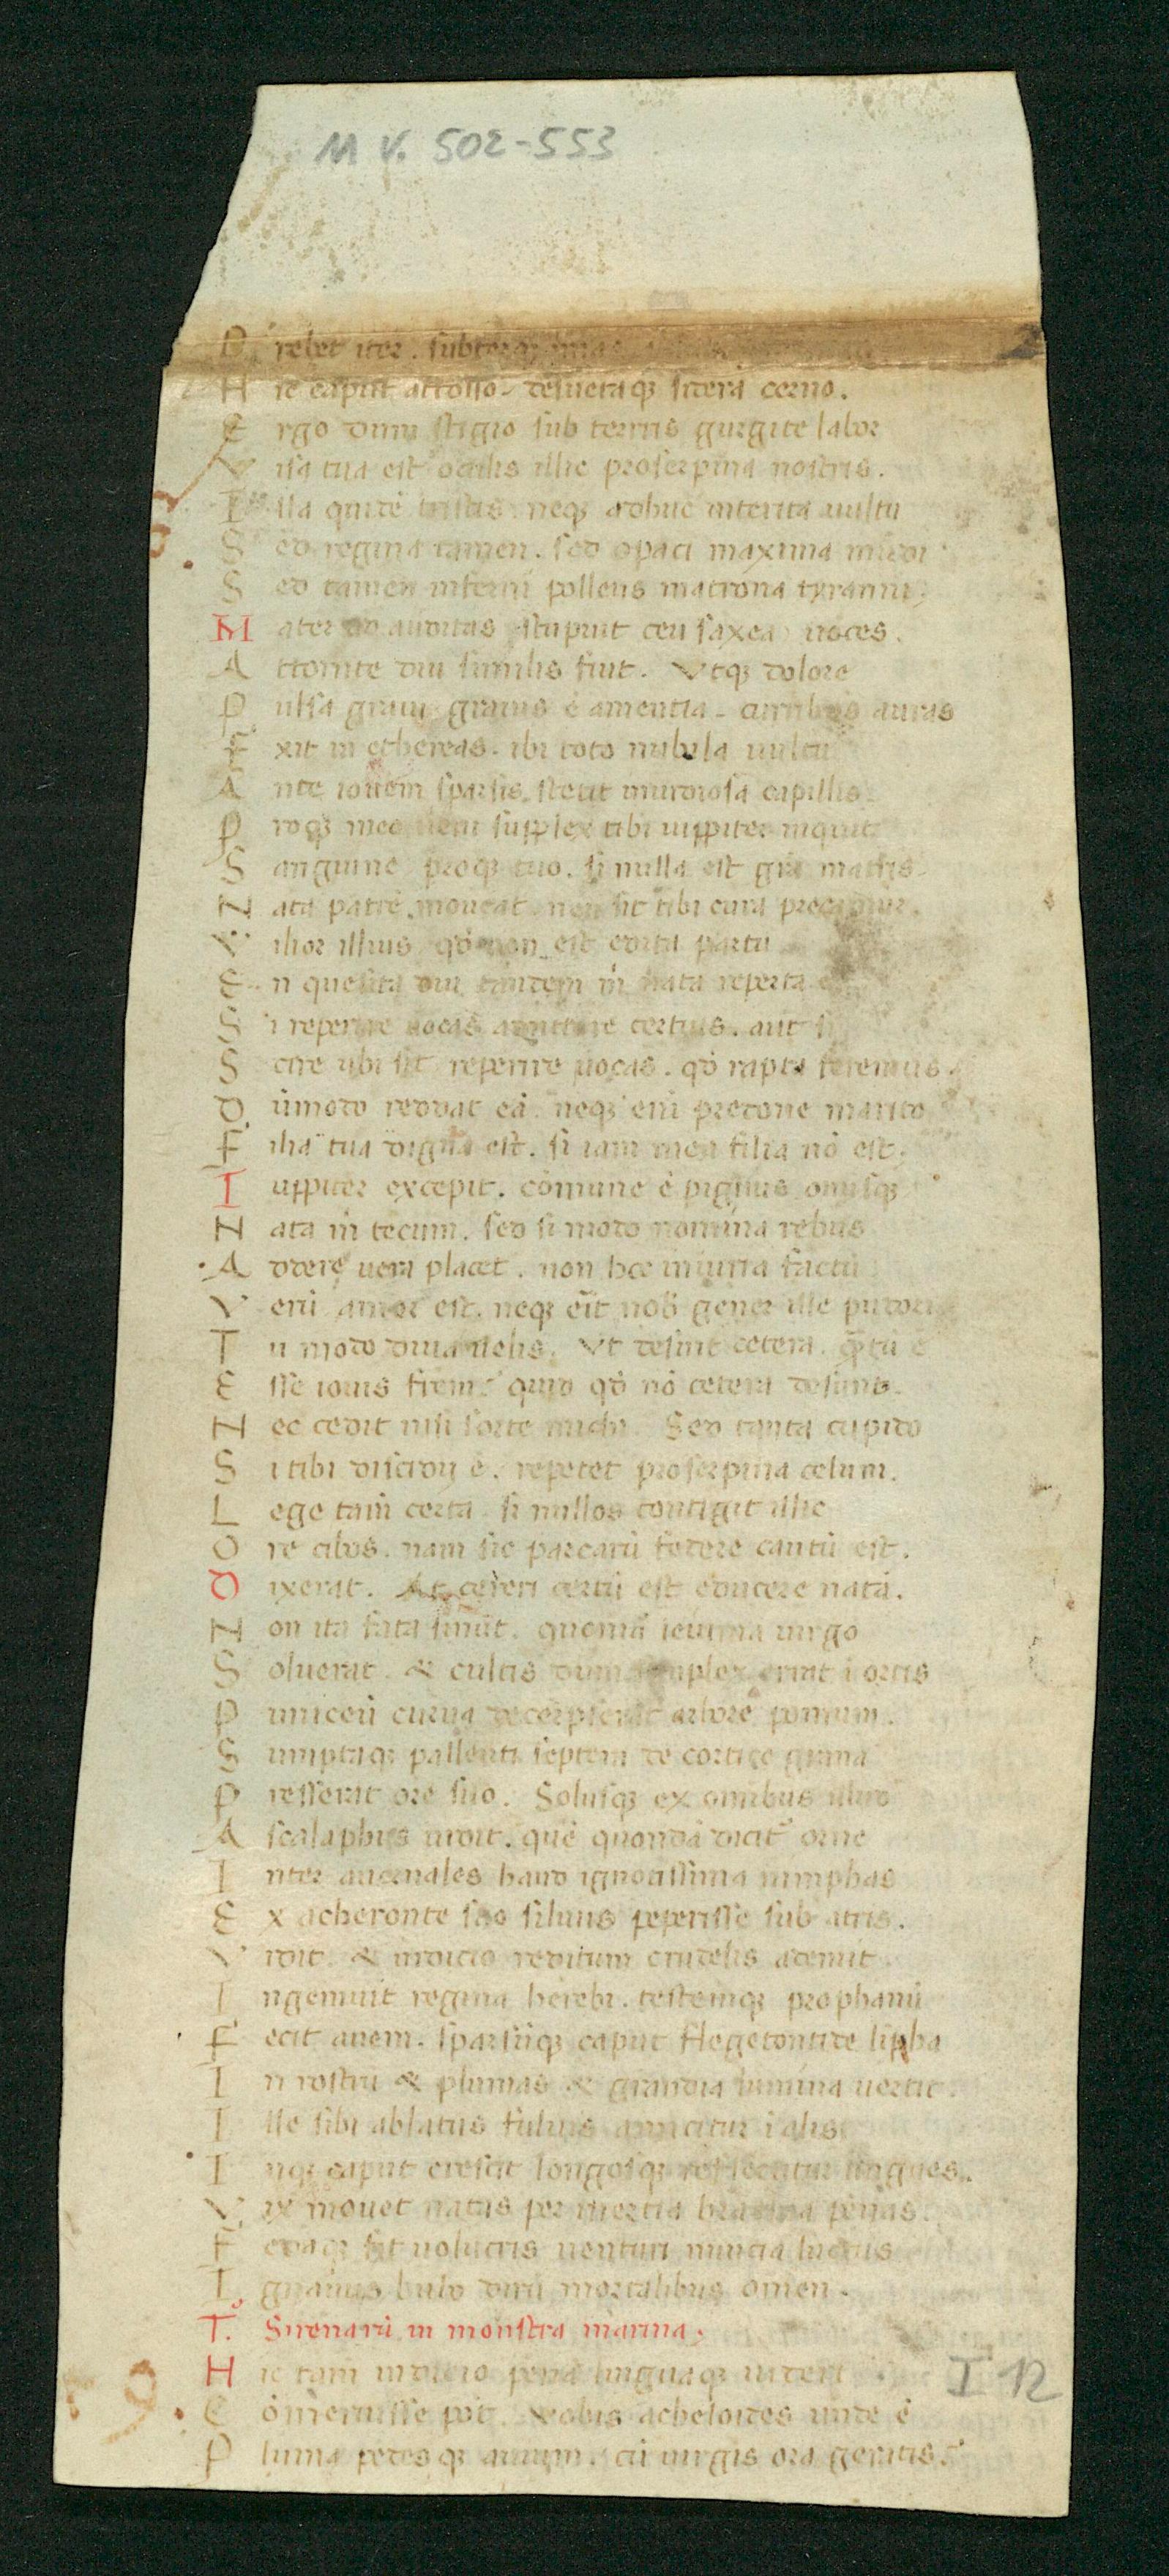 M V. 502-553
P rebet iter. subterq;
H ic caput attollo. desuetaq; sidera cerno.
E rgo dum stigio sub terris gurgite labor
V isa tua est oculis illic proserpina nostris.
I lla quidē tristis neq; adhuc interita uultu
S ed regina tamen. sed opaci maxima mundi
S ed tamen inferni pollens matrona tyranni.
M ater ad auditas stupuit ceu saxea uoces.
A ttonite diu similis fuit. Vtq; dolore
P ulsa graui grauis ē amentia. curribus auras
E xit in ethereas. ibi toto nubila uultu
A nte iouem sparsis stetit inuidiosa capillis.
P roq; meo ueni supplex tibi iuppiter inquit
S anguine proq; tuo. si nulla est grā matris.
N ata patrē moueat. neu sit tibi cura precamur.
V ilior illius qd̄ non est edita partu
E n quesita diu tandem m̄ nata reperta
S i reperire uocas amittere certius. aut si
S cire ubi sit reperire uocas. qd̄ rapta feremus.
D ūmodo reddat eā. neq; enī predone marito
F ilia tua digna est. si iam mea filia nō est.
I uppiter excepit. cōmune ē pignus onusq;
N ata m̄ tecum. sed si modo nomina rebus
A ddere uera placet. non hoc iniuria factū
V erū amor est. neq; erit nob̄ gener ille pudori
T u modo diua uelis. Vt desint cetera. q̄ntū ē
E sse iouis frem̄ quid qd̄ nō cetera desunt.
N ec cedit nisi sorte michi. Sed tanta cupido
S i tibi discidii ē. repetet proserpina celum.
L ege tam̄ certa. si nullos contigit illic
O re cibos. nam sic parcarū federe cautū est.
D ixerat. At cereri certū est educere natā.
N on ita fata sinūt. quoniā ieiunia uirgo
S oluerat. & cultis dum simplex errat ī ortis
P uniceū curua decerpserat arbore pomum.
S umptaq; pallenti septem de cortice grana
P resserat ore suo. Solusq; ex omnibus illud
A scalaphus uidit. quē quondā dicit̄ orne
I nter auernales haud ignotissima nimphas
E x acheronte suo siluis peperisse sub atris.
V idit. & indicio reditum crudelis ademit
I ngemuit regina herebi. testemq; prophanū
F ecit auem. sparsūq; caput flegetontide lipha
I n rostrū & plumas & grandia lumina uertit.
I lle sibi ablatus fuluis amicitur ī alis
I nq; caput crescit longosq; reflectitur ungues.
V ix mouet natas per inertia bracchia pēnas.
F edaq; fit uolucris uenturi nuncia luctus
I gnauus bubo dirū mortalibus omen.
T. Sirenarū in monstra marina.
H ic tam̄ indicio penā linguaq; uideri
C ōmeruisse pōt. Vobis acheloides unde ē
P luma pedesq; auium. cū uirgis ora geratis.
I 12